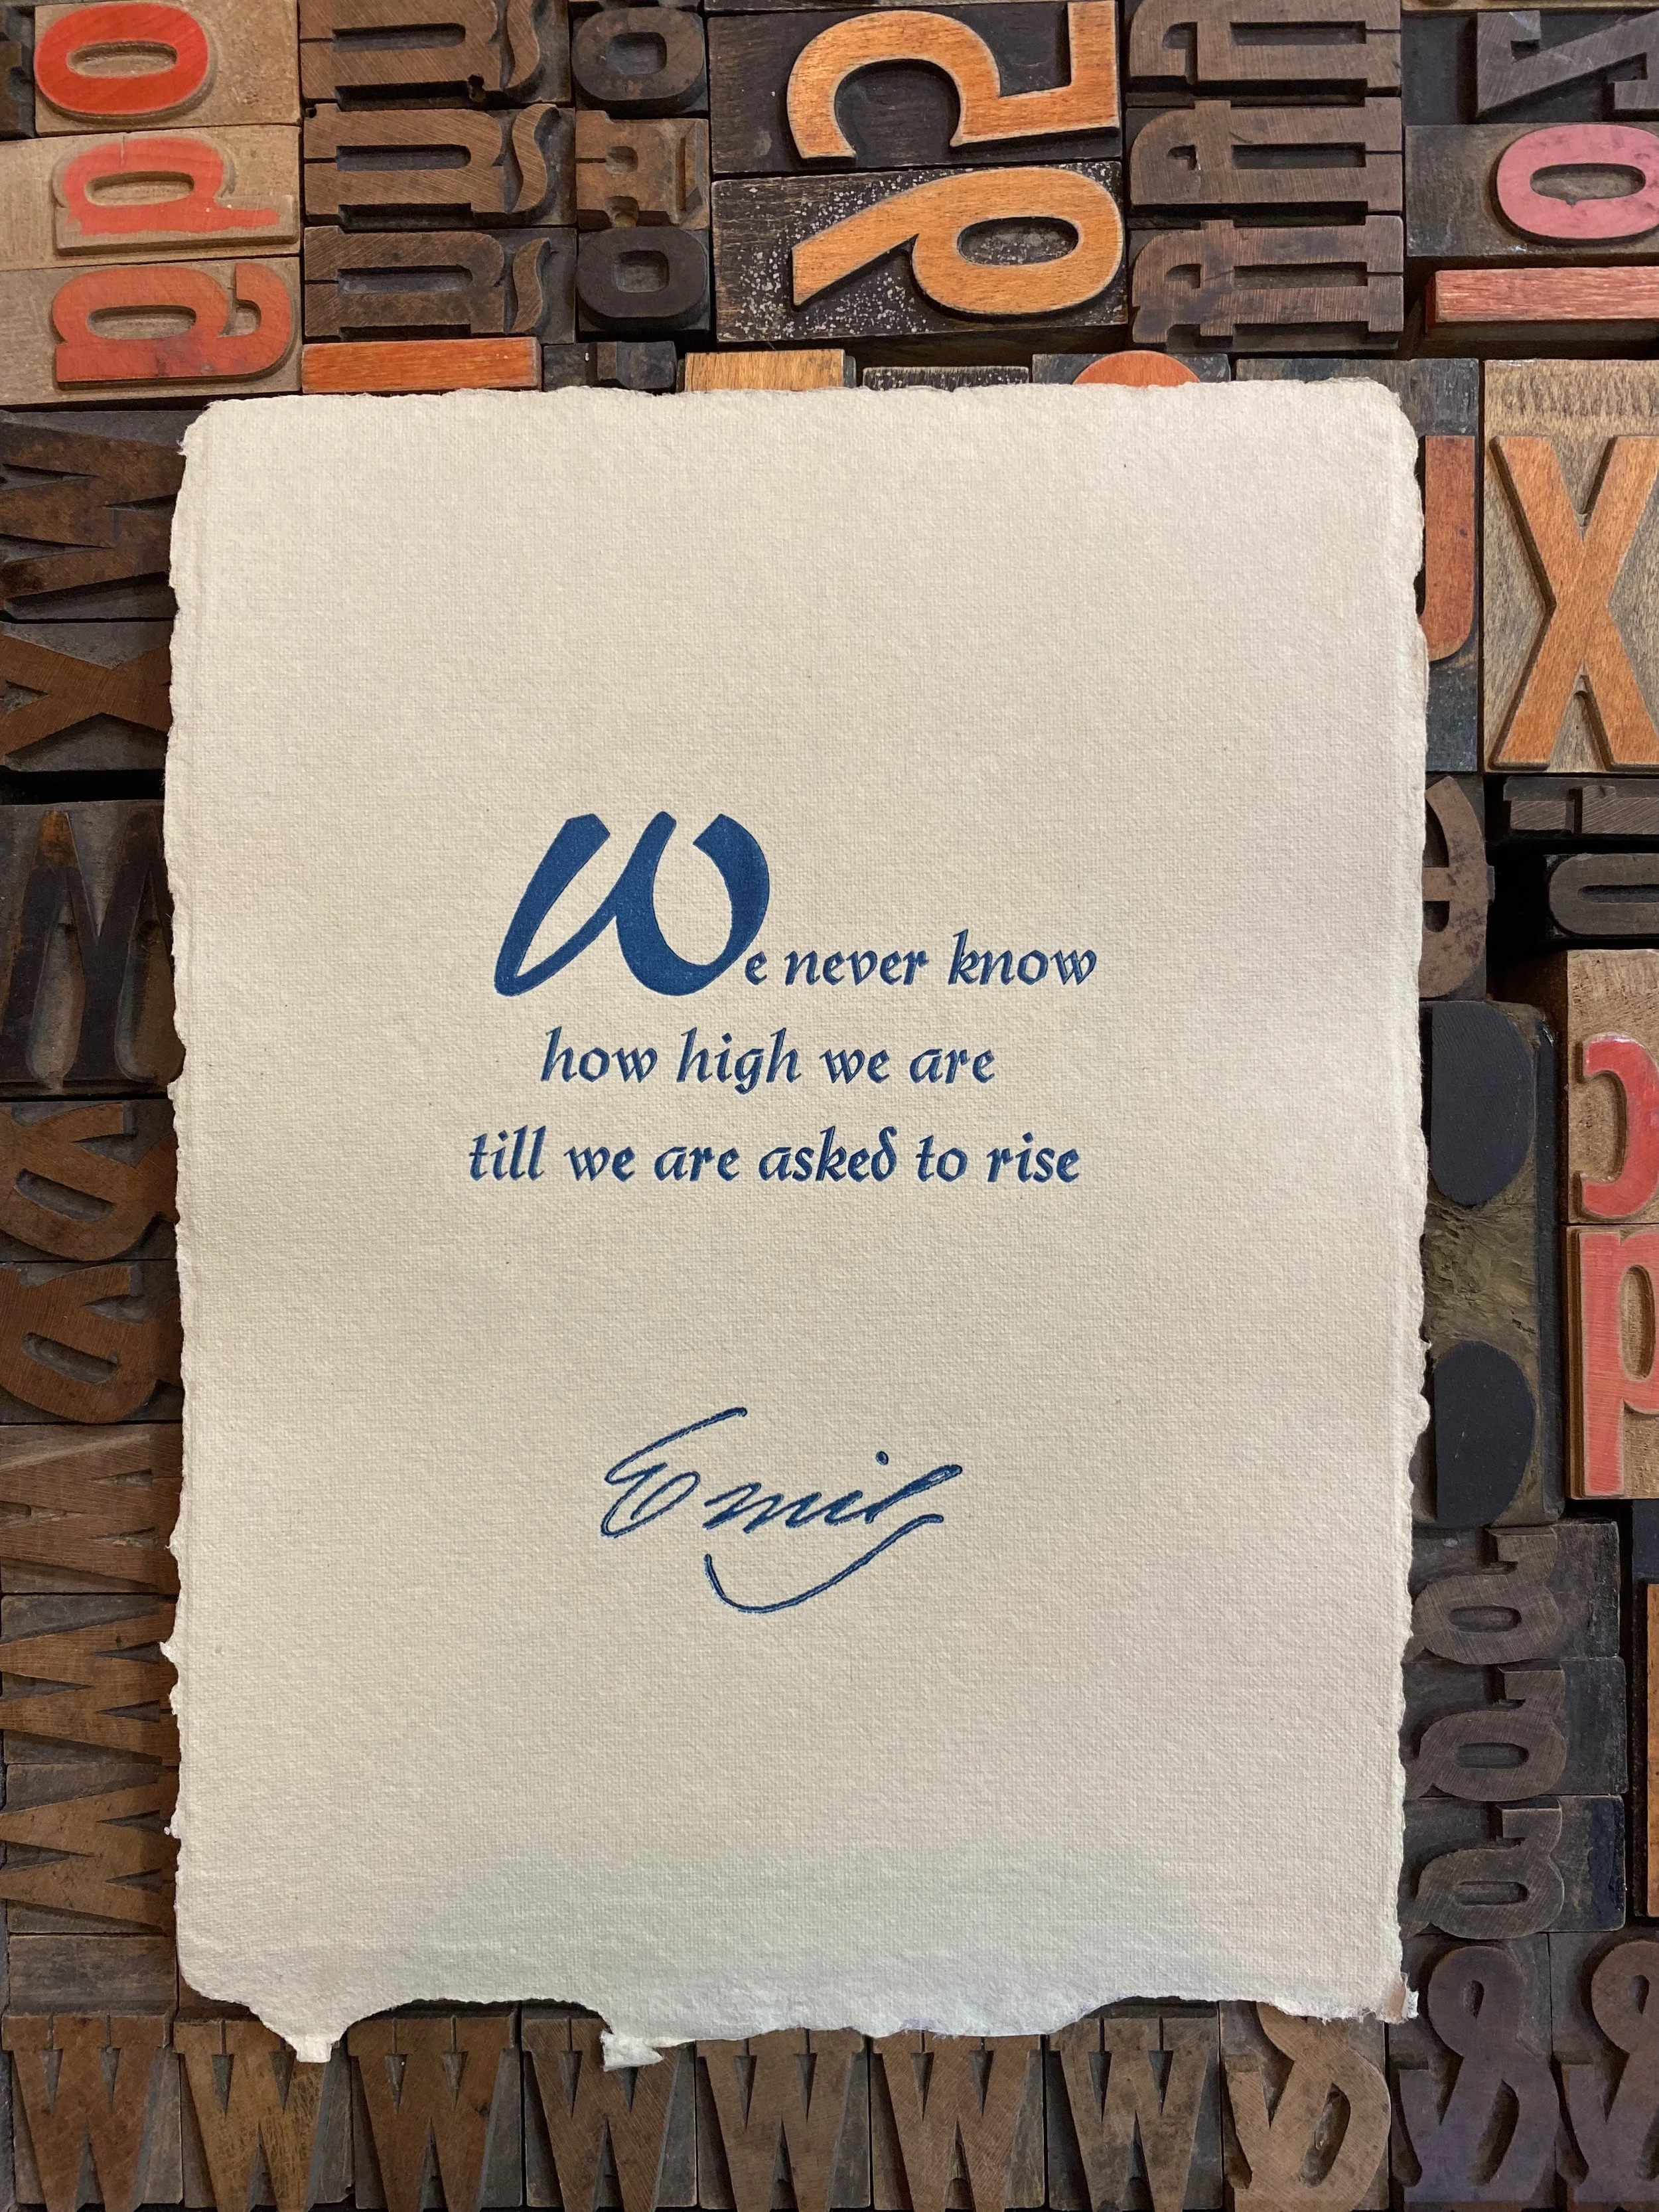 We never know
how high we are
till we are asked to rise
Emily